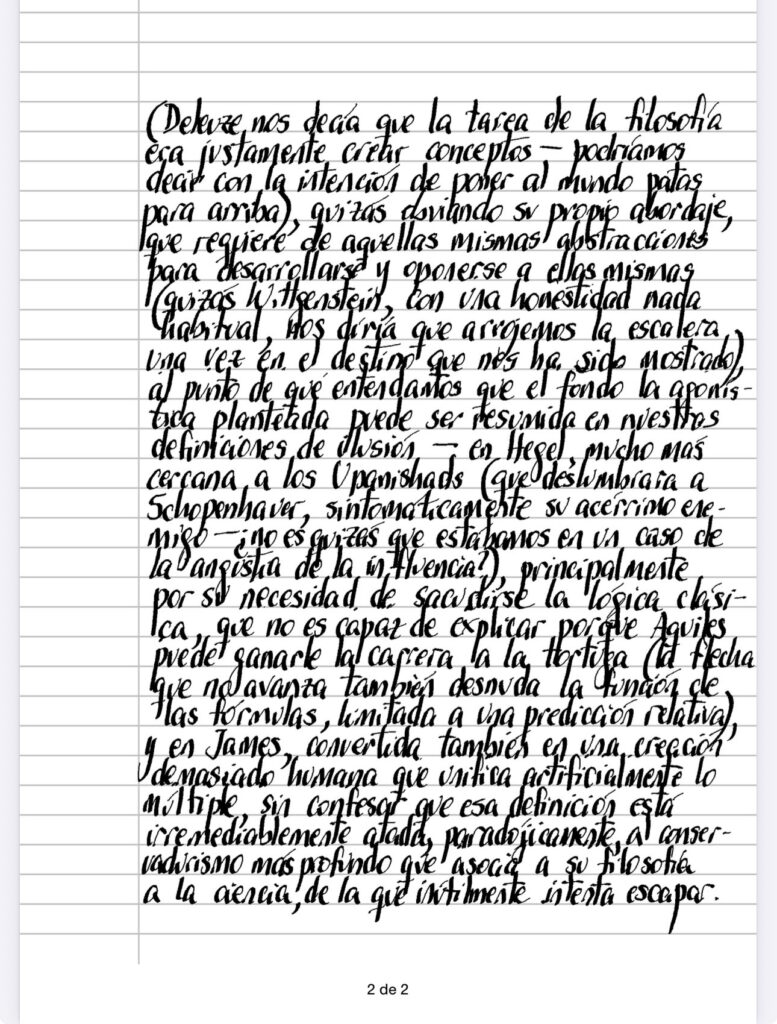 (Deleuze nos decía que la tarea de la filosofía
era justamente crear conceptos — podríamos
decir con la intención de poner al mundo patas
para arriba), quizás obviando su propio abordaje,
que requiere de aquellas mismas abstracciones
para desarrollarse y oponerse a ellas mismas
(quizás Wittgenstein, con una honestidad nada
habitual, nos diría que arrojemos la escalera
una vez en el destino que nos ha sido mostrado),
al punto de que entendamos que el fondo la agonís-
tica planteada puede ser resumida en nuestras
definiciones de ilusión — en Hegel, mucho más
cercana a los Upanishads (que deslumbrara a
Schopenhauer, sintomáticamente su acérrimo ene-
migo — ¿no es quizás que estábamos en un caso de
la angustia de la influencia?), principalmente
por su necesidad de sacudirse la lógica clási-
ca, que no es capaz de explicar porque Aquiles
puede ganarle la carrera a la tortuga (la flecha
que no avanza también desnuda la función de
las fórmulas, limitada a una predicción relativa),
y en James, convertida también en una creación
demasiado humana que unifica artificialmente lo
múltiple, sin confesar que esa definición está
irremediablemente atada, paradójicamente, al conser-
vadurismo más profundo que asocia a su filosofía
a la ciencia, de la que inútilmente intenta escapar.
2 de 2